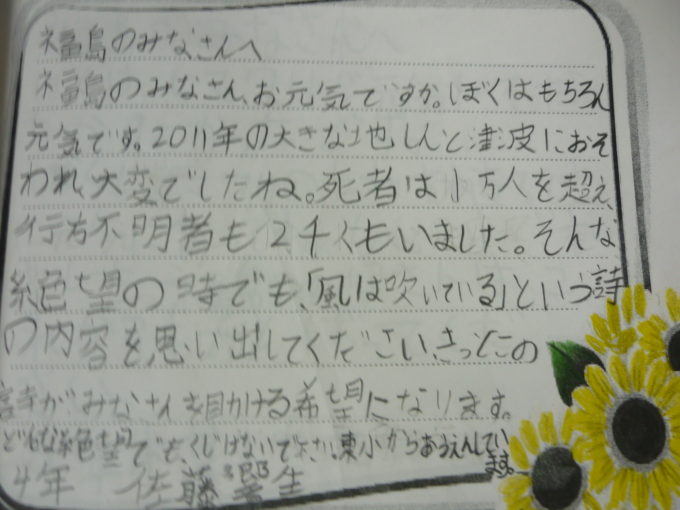 福島のみなさんへ
福島のみなさん、お元気ですか。ぼくはもちろん
元気です。2011年の大きな地しんと津波におそ
われ大変でしたね。死者は1万人を超え、
行方不明者も2千くもいました。そんな
絶望の時でも、「風は吹いている」という詩
の内容を思い出してください。きっとこの
詩がみなさんを助ける希望になります。
どんな絶望でも、くじけないで下さい。東小からおうえんしてい
ます。
4年 佐藤 生